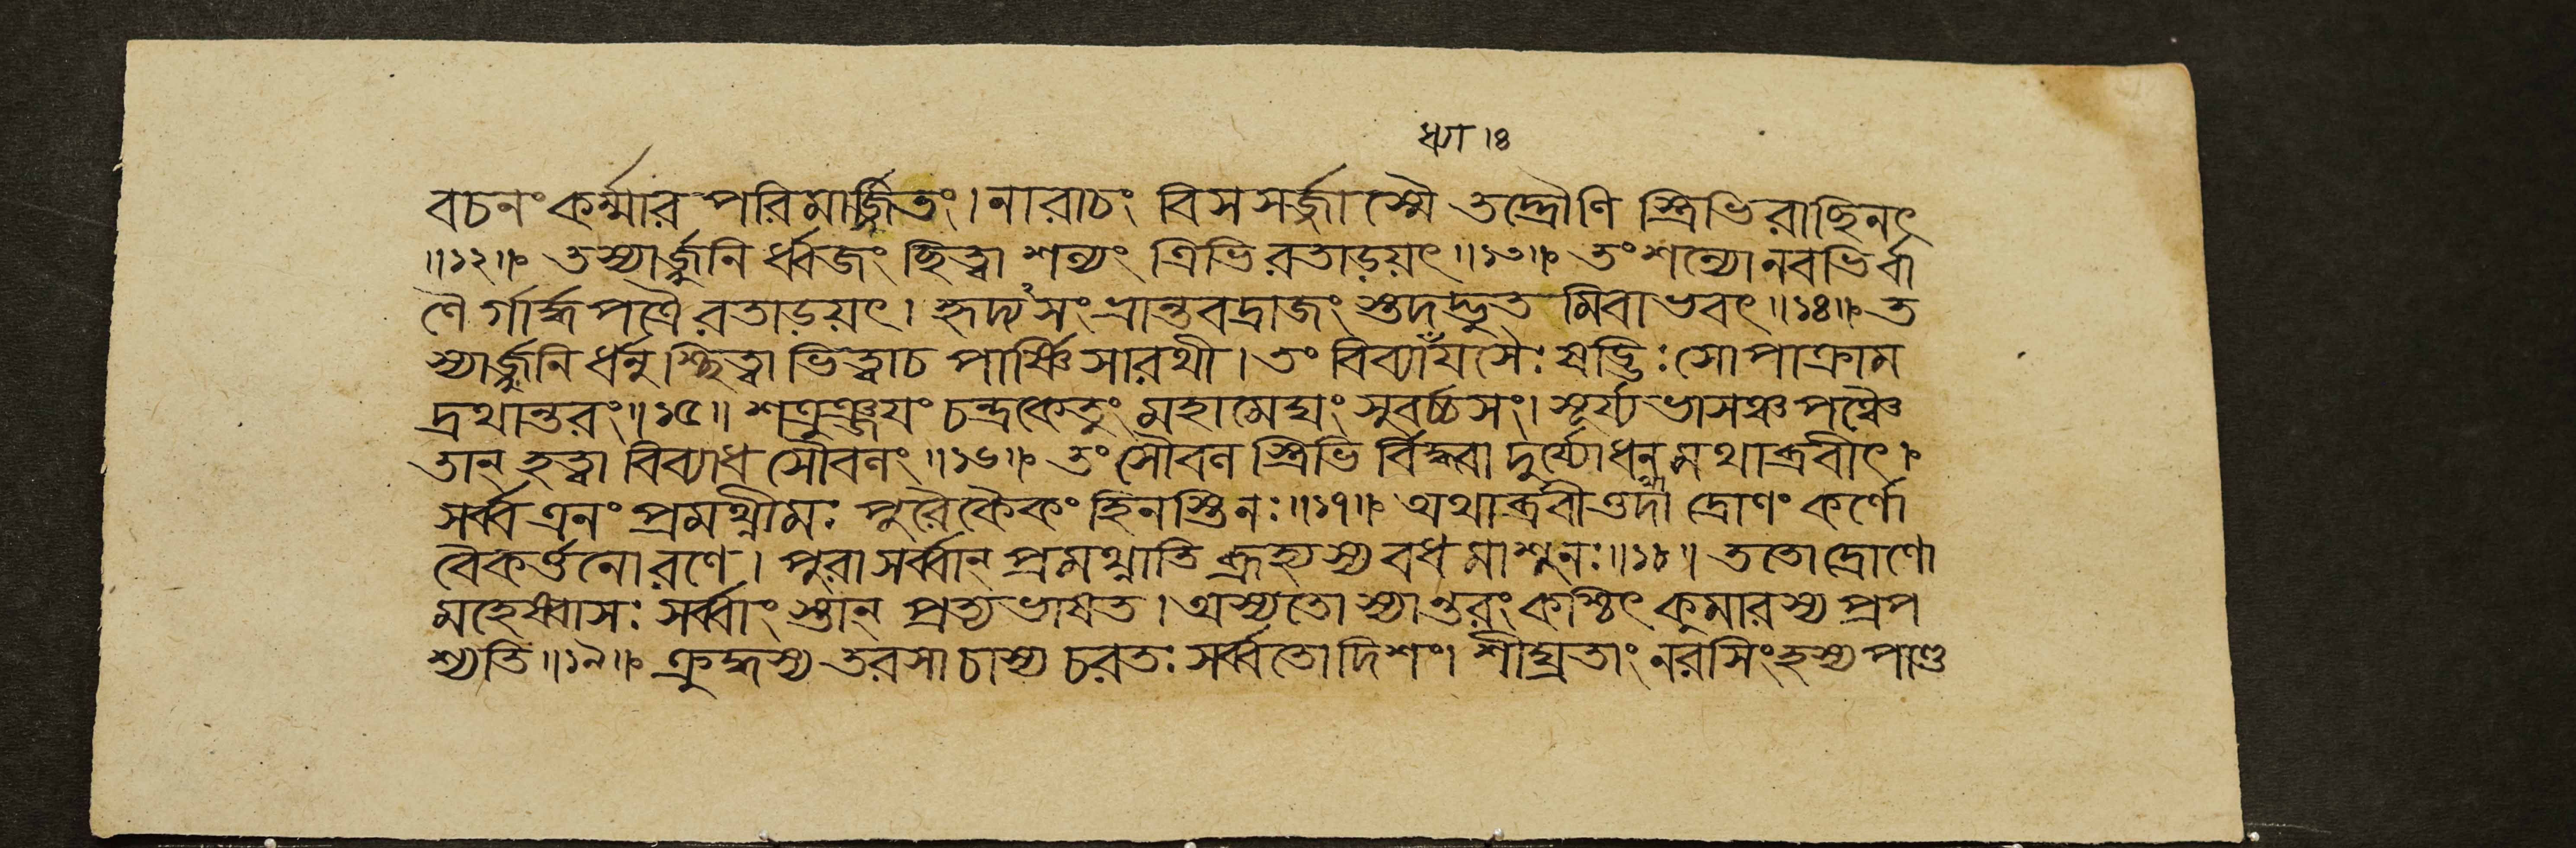 ধ্যা ৷৪
বচনং কর্ম্মার পরিমার্জ্জিতং। নারাচং বিসসর্জ্জাস্মৈ তদ্দ্রৌণি স্ত্রিভিরাচ্ছিনৎ
॥১২॥ তস্যার্জ্জুনি র্ধ্বজং ছিত্বা শল্যং ত্রিভিরতাড়য়ৎ॥১৩॥ তং শল্যো নবভির্বা
ণৈ র্গার্দ্ধপত্রৈ রতাড়য়ৎ। হৃদ্য সংভ্রান্তবদ্রাজং স্তদদ্ভুত মিবাভবৎ॥১৪॥ ত
স্যার্জ্জুনি র্ধনু শ্ছিত্বা ভিত্বাচ পার্ষ্ণিসারথী। তং বিব্যাধায়সৈঃ ষড্ভিঃ সোপাক্রাম
দ্রথান্তরং॥১৫॥ শত্রুঞ্জয়ং চন্দ্রকেতুং মহামেঘং সুবর্চ্চসং। সূর্য্যভাসঞ্চ পঞ্চৈ
তান্ হত্বা বিব্যাধ সৌবলং॥১৬॥ তং সৌবল স্ত্রিভি র্বিদ্ধ্বা দুর্য্যোধন মথাব্রবীৎ।
সর্ব্ব এনং প্রমথ্নীমঃ পুরৈকৈকং হিনস্তি নঃ॥১৭॥ অথাব্রবীত্তদা দ্রোণং কর্ণো
বৈকর্ত্তনো রণে। পুরা সর্ব্বান্ প্রমথ্নাতি ব্রূহ্যস্য বধমাশু নঃ॥১৮॥ ততো দ্রোণো
মহেষ্বাসঃ সর্ব্বাং স্তান্ প্রত্যভাষত। অস্যতো স্যান্তরং কশ্চিৎ কুমারস্য প্রপ
শ্যতি॥১৯॥ ক্রুদ্ধস্য তরসা চাস্য চরতঃ সর্ব্বতোদিশং। শীঘ্রতাং নরসিংহস্য পাণ্ড